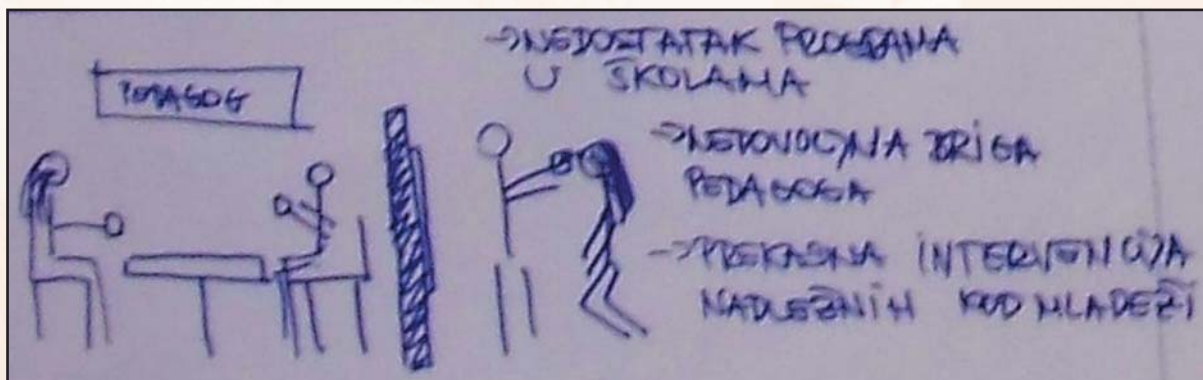 PEDAGOG
→NEDOSTATAK PROGRAMA
U ŠKOLAMA
→NEDOVOLJNA BRIGA
PEDAGOGA
→PREKASNA INTERVENCIJA
NADLEŽNIH KOD MLADEŽI